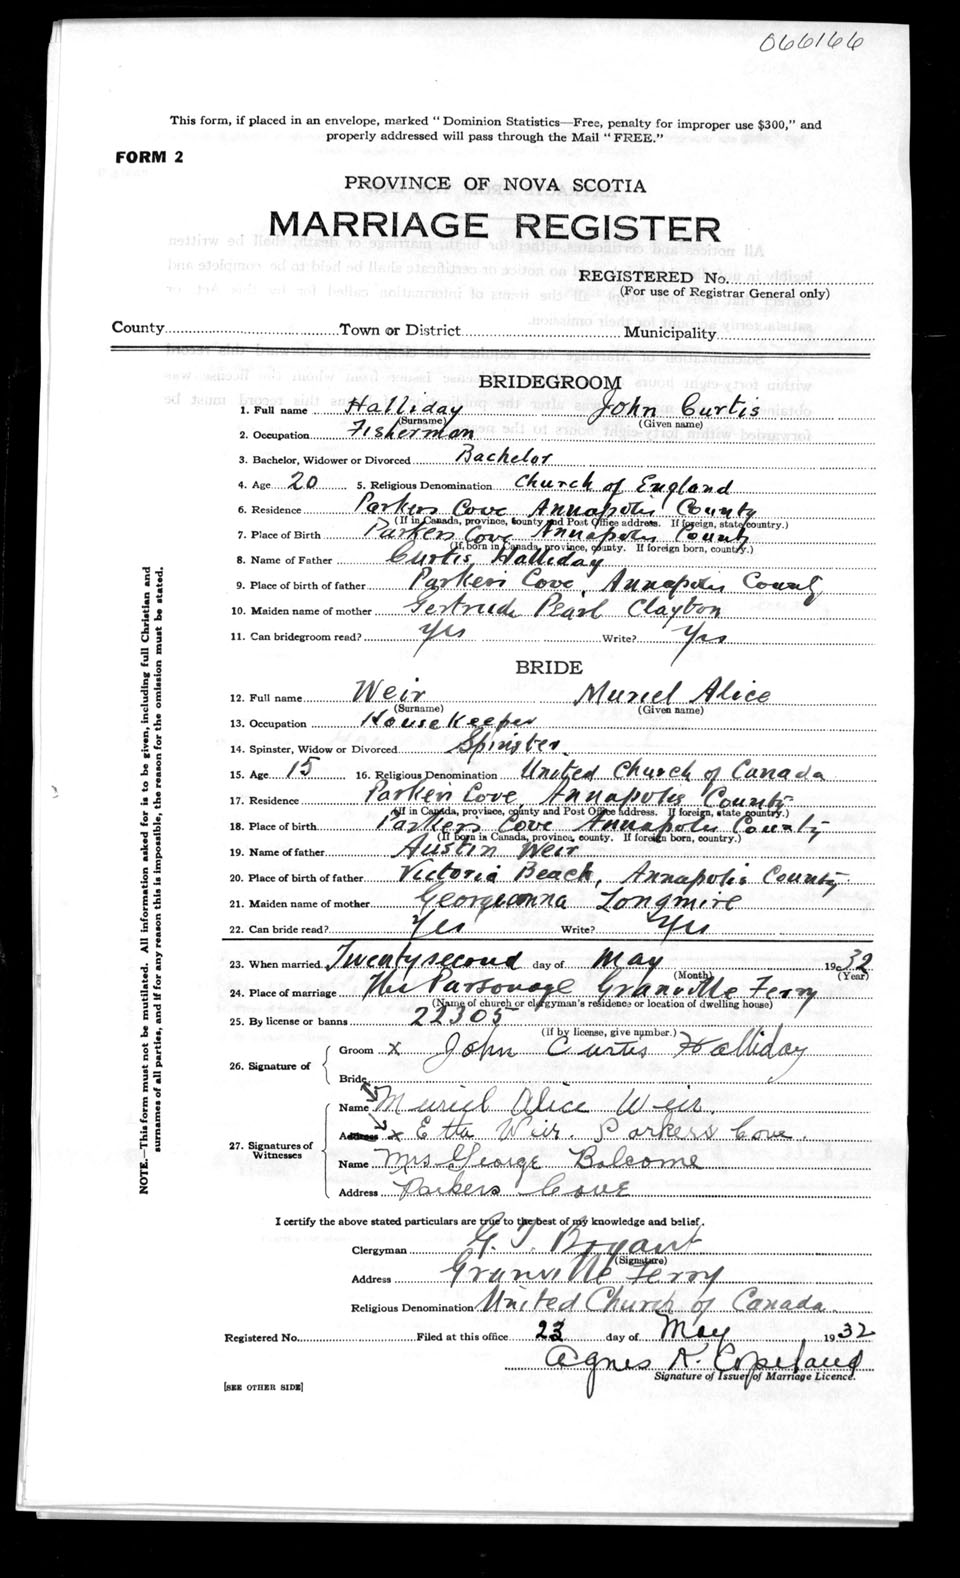 066166
This form, if placed in an envelope, marked "Dominion Statistics—Free, penalty for improper use $300," and
properly addressed will pass through the Mail "FREE."
FORM 2
PROVINCE OF NOVA SCOTIA
MARRIAGE REGISTER
REGISTERED No.
(For use of Registrar General only)
County Town or District Municipality
BRIDEGROOM
1. Full name Halliday John Curtis
(Surname) (Given name)
2. Occupation Fisherman
3. Bachelor, Widower or Divorced Bachelor
4. Age 20 5. Religious Denomination Church of England
6. Residence Parkers Cove Annapolis County
(If in Canada, province, county and Post Office address. If foreign, state country.)
7. Place of Birth Parkers Cove Annapolis County
(If born in Canada, province, county. If foreign born, country.)
8. Name of Father Curtis Halliday
9. Place of birth of father Parkers Cove, Annapolis County
10. Maiden name of mother Gertrude Pearl Clayton
11. Can bridegroom read? Yes Write? Yes
BRIDE
12. Full name Weir Muriel Alice
(Surname) (Given name)
13. Occupation House Keeper
14. Spinster, Widow or Divorced Spinster.
15. Age 15 16. Religious Denomination United Church of Canada
17. Residence Parkers Cove, Annapolis County
(If in Canada, province, county and Post Office address. If foreign, state country.)
18. Place of birth Parkers Cove Annapolis County
(If born in Canada, province, county. If foreign born, country.)
19. Name of father Austin Weir
20. Place of birth of father Victoria Beach, Annapolis County
21. Maiden name of mother Georgeanna Longmire
22. Can bride read? Yes Write? Yes
23. When married Twenty second day of May 1932
(Month) (Year)
24. Place of marriage The Parsonage Granville Ferry
(Name of church or clergyman's residence or location of dwelling house)
25. By license or banns 22305
(If by license, give number.)
26. Signature of Groom x John Curtis Halliday
Bride
27. Signatures of Witnesses Name Muriel Alice Weir.
Address x Etta Weir. Parkers Cove.
Name Mrs George Balcome
Address Parkers Cove
I certify the above stated particulars are true to the best of my knowledge and belief.
Clergyman G. T. Bryant
(Signature)
Address Granville Ferry
Religious Denomination United Church of Canada.
Registered No. Filed at this office 23 day of May 1932
Agnes K. Copeland
Signature of Issuer of Marriage Licence.
[SEE OTHER SIDE]
NOTE.—This form must not be mutilated. All information asked for is to be given, including full Christian and
surnames of all parties, and if for any reason this is impossible, the reason for the omission must be stated.